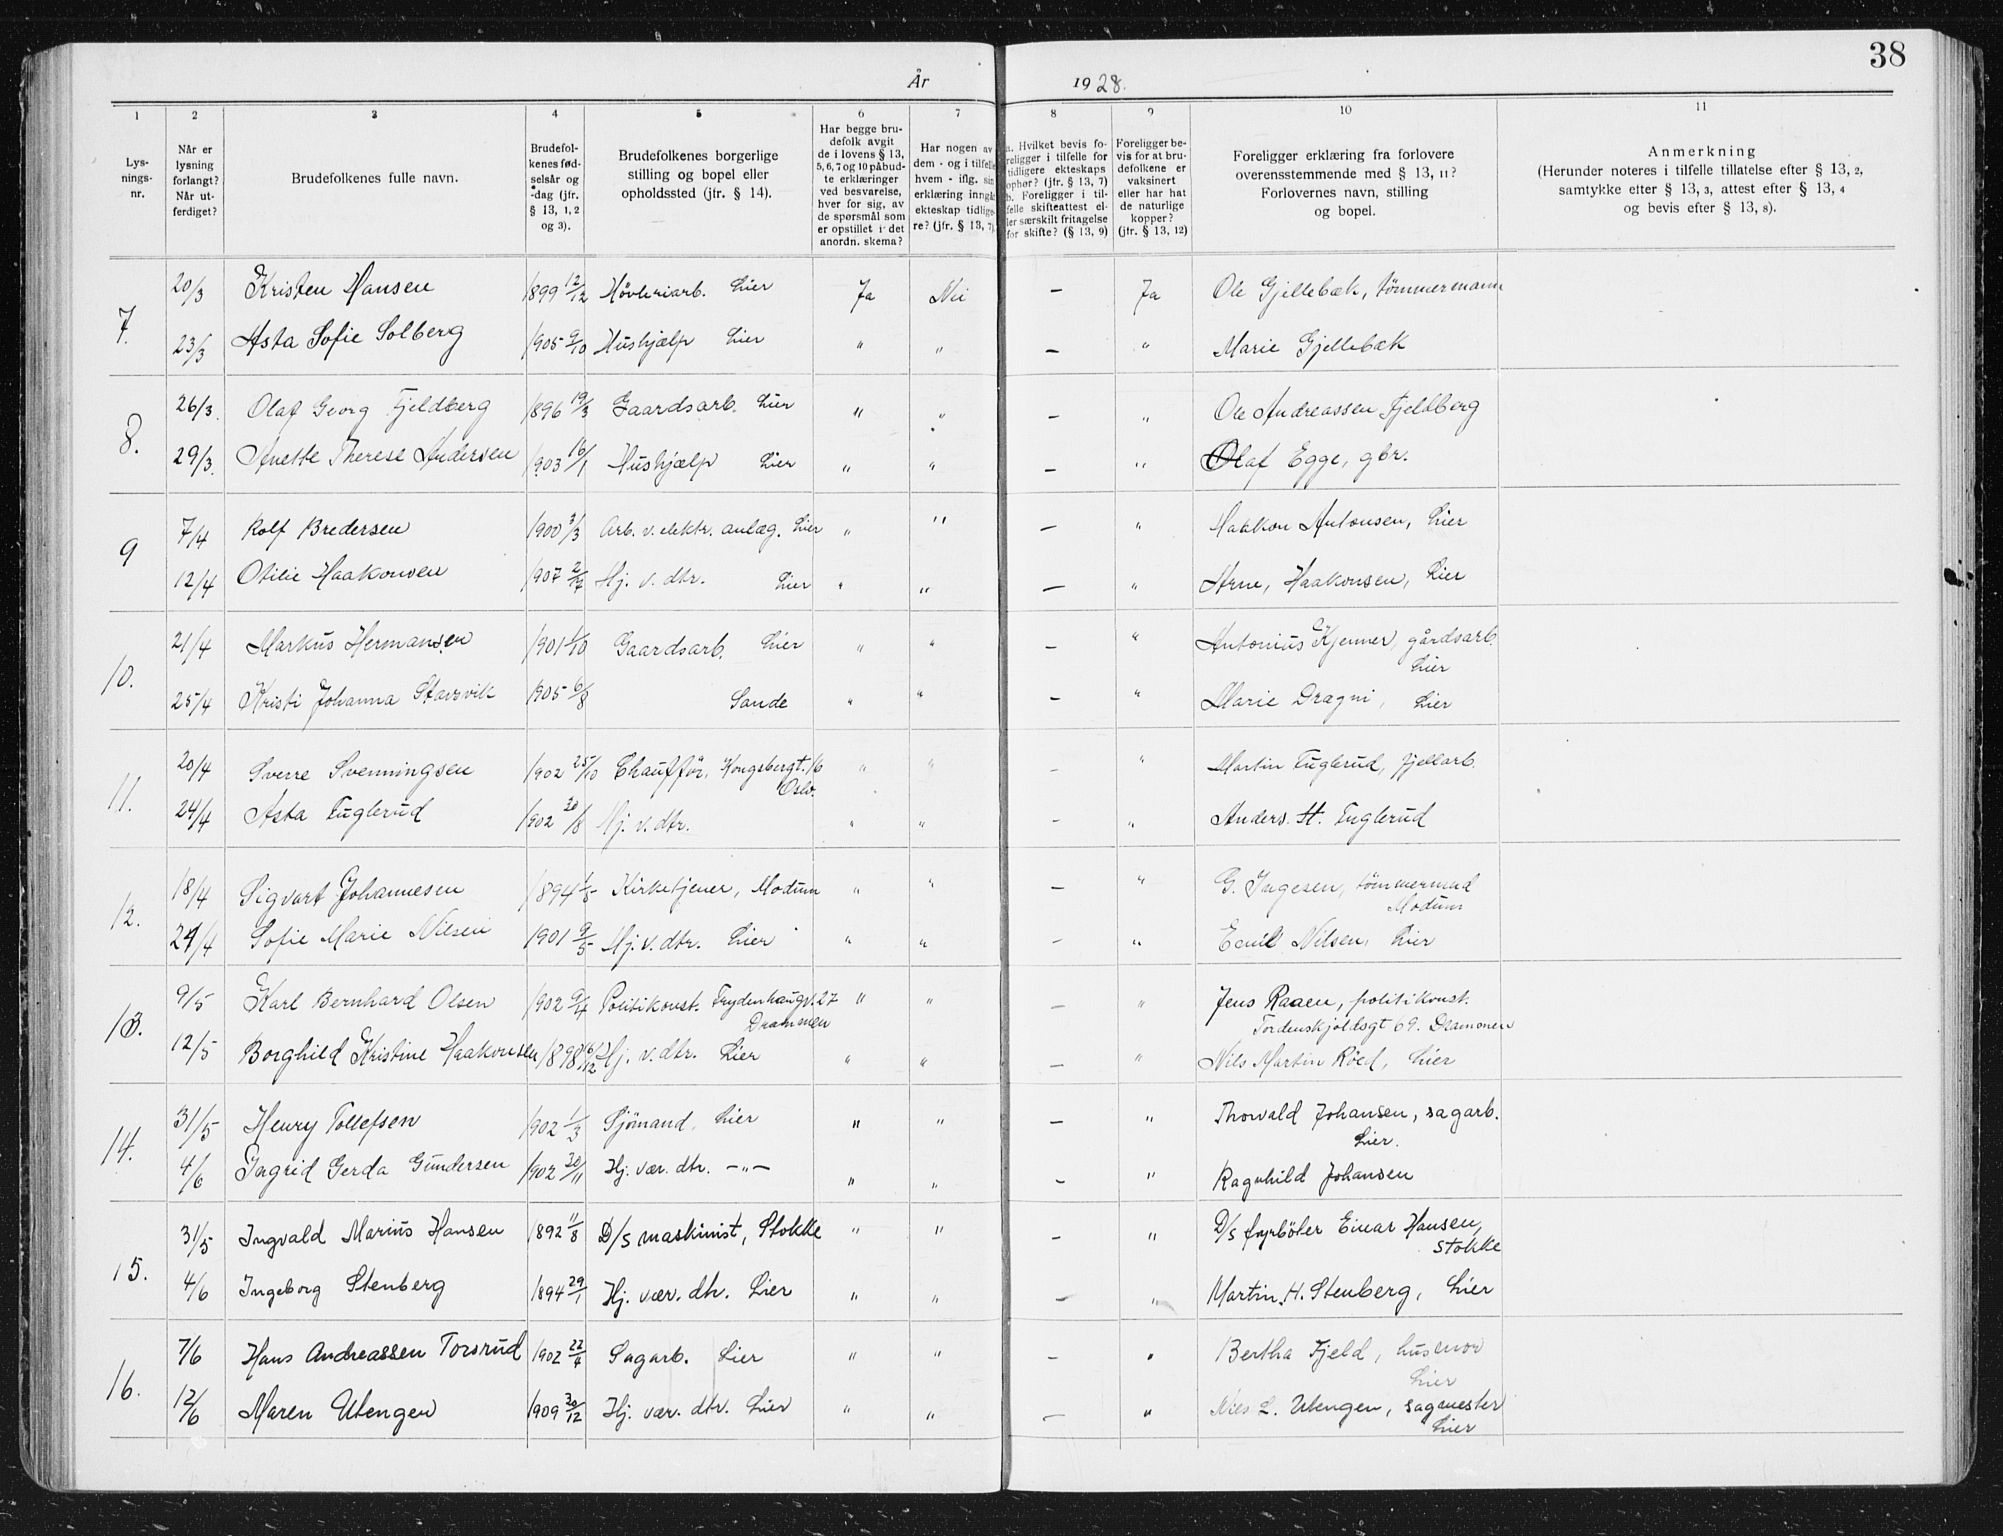 38
År 1928.
1 2 3 4 5 6 7 8 9 10 11
Lys-
nings-
nr.
Når er
lysning
forlangt?
Når ut-
ferdiget?
Brudefolkenes fulle navn.
Brudefol-
kenes fød-
selsår og
-dag (jfr.
§ 13, 1, 2
og 3).
Brudefolkenes borgerlige
stilling og bopel eller
opholdssted (jfr. § 14).
Har begge bru-
defolk avgit
de i lovens § 13,
5, 6, 7 og 10 påbud-
te erklæringer
ved besvarelse,
hver for sig, av
de spørsmål som
er opstillet i det
anordn. skema?
Har nogen av
dem - og i tilfelle
hvem - iflg. sin
erklæring inngå
ekteskap tidlige-
re? (jfr. § 13, 7)
a. Hvilket bevis fo-
religger i tilfelle for
tidligere ekteskaps
ophør? (jfr. § 13, 7)
b. Foreligger i til-
felle skifteattest el-
ler særskilt fritagelse
for skifte? (§ 13, 9)
Foreligger be-
vis for at bru-
defolkene er
vaksinert
eller har hat
de naturlige
kopper?
(jfr. § 13, 12)
Foreligger erklæring fra forlovere
overensstemmende med § 13, 11?
Forlovernes navn, stilling
og bopel.
Anmerkning
(Herunder noteres i tilfelle tillatelse efter § 13, 2,
samtykke etter § 13, 3, attest efter § 13, 4
og bevis efter § 13, 8).
7. 20/3 Kristen Hansen 1899 12/12 Høvleriarb. Lier Ja Nei — Ja Ole Gjellebæk, tømmermann
23/3 Asta Sofie Solberg 1905 9/10 Hushjælp Lier " " — " Marie Gjellebæk
8. 26/3. Olaf Georg Fjeldberg 1896 19/3 Gaardsarb. Lier " " — " Ole Andreassen Fjeldberg
29/3. Anette Therese Andersen 1903 16/1 Hushjælp Lier " " — " Olaf Egge, gbr.
9 7/4 Rolf Bredersen 1900 3/3 Arb. v. elektr. anlæg. Lier " " — " Haakon Antonsen, Lier
12/4 Otilie Haakonsen 1907 2/7 Hj. v. dtr. Lier " " — " Arne, Haakonsen, Lier
10. 21/4 Markus Hermansen 1901 1/10 Gaardsarb. Lier " " — " Antonius Kjenner, gårdsarb.
Lier
25/4 Kristi Johanna Stavsvik 1905 6/8 Sande " " — " Marie Dragni, Lier
11. 20/4 Sverre Svenningsen 1902 25/10 Chauffør, Kongsbergt. 16 " " — " Martin Fuglerud, fjellarb.
Oslo.
24/4 Asta Fuglerud 1902 30/8 Hj. v. dtr. " " — " Anders. H. Fuglerud
12. 18/4 Sigvart Johannesen 1894 1/8 Kirketjener, Modum " " — " G. Ingesen, tømmermnd
Modum
24/4 Sofie Marie Nilsen 1901 9/5 Hj. v. dtr. Lier " " — " Emil Nilsen, Lier
13. 9/5 Karl Bernhard Olsen 1902 9/4 Politikonst. Frydenhaugv. 27 " " — " Jens Raaen, politikonst.
Drammen Tordenskjoldsgt 69. Drammen
12/5 Borghild Kristine Haakonsen 1898 16/12 Hj. v. dtr. Lier " " — " Nils Martin Röed, Lier
14. 31/5 Henry Tollefsen 1902 1/3 Sjömand, Lier " " — " Thorvald Johansen, sagarb.
Lier.
4/6 Ingrid Gerda Gundersen 1902 30/11 Hj. vær. dtr. —"— " " — " Ragnhild Johansen
15. 31/5 Ingvald Marius Hansen 1892 11/8 D/s maskinist, Stokke " " — " D/s fyrböter Einar Hansen,
Stokke
4/6 Ingeborg Stenberg 1894 29/1 Hj. vær. dtr. Lier " " — " Martin. H. Stenberg, Lier
16. 7/6 Hans Andreassen Torsrud 1902 22/4 Sagarb. Lier " " — " Bertha Fjeld, husmor
Lier
12/6 Maren Utengen 1909 30/12 Hj. vær. dtr. Lier " " — " Niels L. Utengen, sagmester
Lier